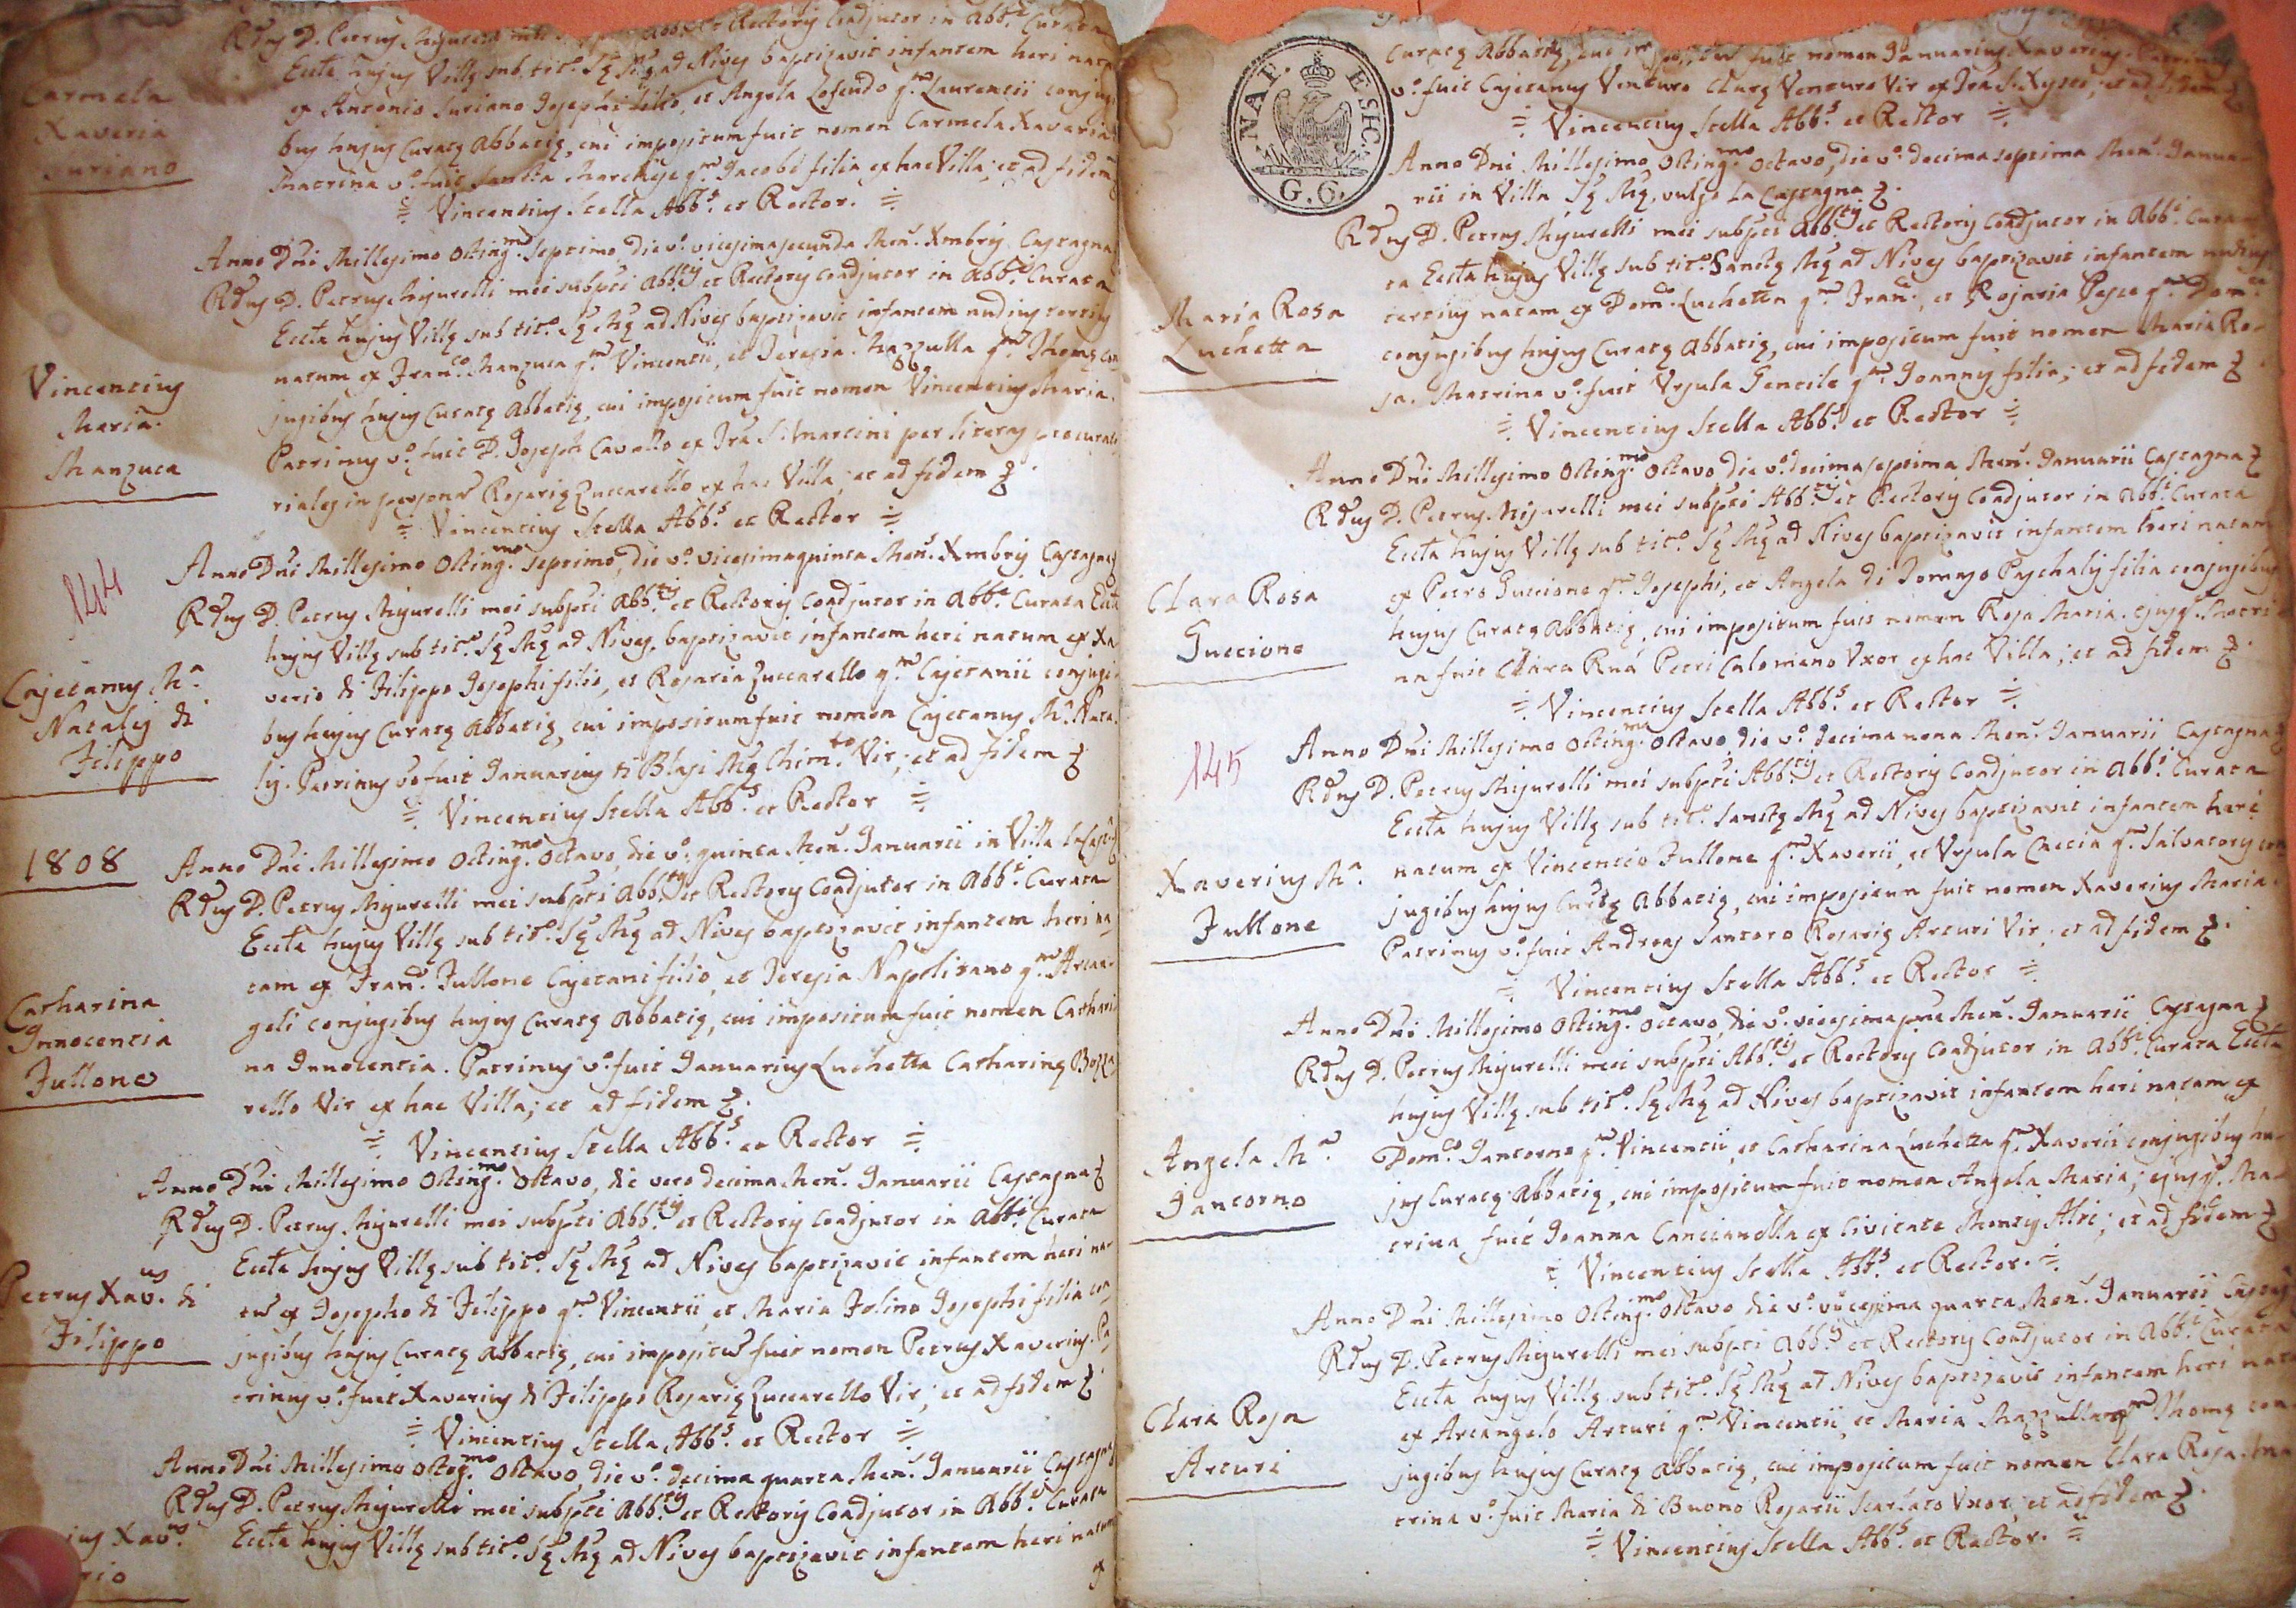 Rdus D. Petrus Misurelli mei Abb. et Rectoris Coadjutor in Abb. Curata
Carmela
Xaveria
Suriano
Eccta hujus Villę sub tit.o Sę Mę ad Nives baptizavit infantem heri nata
ex Antonio Suriano Josephi filio, et Angela Lofendo q.m Laurentii conjugi
bus hujus Curatę Abbatię, cui impositum fuit nomen Carmela Xaveria
Matrina v.o fuit Sancta Marchese q.m Jacobi filia ex hac Villa; et ad fidem
Vincentius Stella Abb.s et Rector.
Anno Dni Millesimo Octing.mo septimo, die v.o vicesimasecunda Men. Xmbris Castagna
Rdus D. Petrus Misurelli mei subpti Abb.tis et Rectoris Coadjutor in Abb.i Curata
Vincentius
Maria
Manzuca
Eccta hujus Villę sub tit.o Sę Mę ad Nives baptizavit infantem nudius tertius
natum ex Fran.co Manzuca q.m Vincentii, et Teresia Mazzulla q.m Thomę con
jugibus hujus Curatę Abbatię, cui impositum fuit nomen Vincentius Maria.
Patrinus v.o fuit D. Joseph Cavallo ex Tra S. Martini per literas procurato
riales in persona Rosarię Zuccarello ex hac Villa; et ad fidem
Vincentius Stella Abb.s et Rector
144
Anno Dni Millesimo Octing.mo septimo, die v.o vicesimaquinta Men. Xmbris Castagna
Rdus D. Petrus Misurelli mei subpti Abb.tis et Rectoris Coadjutor in Abb.i Curata Eccta
Cajetanus M.a
Natalis di
Filippo
hujus Villę sub tit.o Sę Mę ad Nives, baptizavit infantem heri natum ex Xa
verio di Filippo Josephi filio, et Rosaria Zuccarello q.m Cajetanii conjugi
bus hujus Curatę Abbatię, cui impositum fuit nomen Cajetanus M.a Nata
lis. Patrinus v.o fuit Januarius di Blasi Mę Chim.to Vir; et ad fidem
Vincentius Stella Abb.s et Rector
1808
Anno Dni Millesimo Octing.mo Octavo, die v.o quinta Men. Januarii in Villa
Rdus D. Petrus Misurelli mei subpti Abb.tis et Rectoris Coadjutor in Abb.i Curata
Catharina
Innocentia
Fullone
Eccta hujus Villę sub tit.o Sę Mę ad Nives baptizavit infantem heri na
tam ex Fran.o Fullone Cajetani filio, et Teresia Napolitano q.m Arcan
geli conjugibus hujus Curatę Abbatię, cui impositum fuit nomen Cathari
na Innocentia. Patrinus v.o fuit Januarius Luchetta Catharinę Bozza
rello Vir ex hac Villa; et ad fidem
Vincentius Stella Abb.s et Rector
Anno Dni Millesimo Octing.mo Octavo, die vero decima Men. Januarii Castagna
Rdus D. Petrus Misurelli mei subpti Abb.tis et Rectoris Coadjutor in Abb.i Curata
Petrus Xav.us di
Filippo
Eccta hujus Villę sub tit.o Sę Mę ad Nives baptizavit infantem heri na
tu ex Josepho di Filippo q.m Vincentii, et Maria Folino Josephi filia con
jugibus hujus Curatę Abbatię, cui impositu fuit nomen Petrus Xaverius. Pa
trinus v.o fuit Xaverius di Filippo Rosarię Zuccarello Vir; et ad fidem
Vincentius Stella Abb.s et Rector
Anno Dni Millesimo Octog.mo Octavo, die v.o decima quarta Men. Januarii Castagna
Rdus D. Petrus Misurelli mei subpti Abb.tis et Rectoris Coadjutor in Abb.i Curata
ius Xav.us
rio
Eccta hujus Villę sub tit.o Sę Mę ad Nives baptizavit infantem heri natum
ex
NAP. E SIC.
G. 6.
Curatę Abbatię, cui fuit nomen Januarius Xaverius. Patrinus
v.o fuit Cajetanus Venturo Clarę Venturo Vir ex Tra S. Xysti; et ad fidem
Vincentius Stella Abb.s et Rector
Anno Dni Millesimo Octing.mo Octavo, die v.o decima septima Men. Janua
rii in Villa Sę Mę, vulgo La Castagna
Rdus D. Petrus Misurelli mei subpti Abb.tis et Rectoris Coadjutor in Abb.i Cura
Maria Rosa
Luchetta
ta Eccta hujus Villę sub tit.o Sanctę Mę ad Nives baptizavit infantem nudius
tertius natam ex Dom.o Luchetta q.m Fran.i, et Rosaria Pesce q.m Dom.ci
conjugibus hujus Curatę Abbatię, cui impositum fuit nomen Maria Ro
sa. Matrina v.o fuit Ursula Gentile q.m Joannis filia; et ad fidem
Vincentius Stella Abb.s et Rector
Anno Dni Millesimo Octing.mo Octavo die v.o decimaseptima Men. Januarii Castagna
Rdus D. Petrus Misurelli mei subpti Abb.tis et Rectoris Coadjutor in Abb.i Curata
Clara Rosa
Guccione
Eccta hujus Villę sub tit.o Sę Mę ad Nives baptizavit infantem heri natam
ex Petro Guccione q.m Josephi, et Angela di Tomaso Paschalis filia conjugibus
hujus Curatę Abbatię, cui impositum fuit nomen Rosa Maria. ejusq. Matri
na fuit Clara Ruá Petri Calomeno Uxor ex hac Villa; et ad fidem
Vincentius Stella Abb.s et Rector
145
Anno Dni Millesimo Octing.mo Octavo, die v.o decima nona Men. Januarii Castagna
Rdus D. Petrus Misurelli mei subpti Abb.tis et Rectoris Coadjutor in Abb.i Curata
Xaverius M.a
Fullone
Eccta hujus Villę sub tit.o Sanctę Mę ad Nives baptizavit infantem heri
natum ex Vincentio Fullone q.m Xaverii, et Ursula Caccia q.m Salvatoris con
jugibus hujus Curatę Abbatię, cui impositum fuit nomen Xaverius Maria.
Patrinus v.o fuit Andreas Santoro Rosarię Arturi Vir; et ad fidem
Vincentius Stella Abb.s et Rector
Anno Dni Millesimo Octing.mo Octavo, die v.o vicesimapma Men. Januarii Castagna
Rdus D. Petrus Misurelli mei subpti Abb.tis et Rectoris Coadjutor in Abb.i Curata Eccta
Angela M.a
Jantorno
hujus Villę sub tit.o Sę Mę ad Nives baptizavit infantem heri natam ex
Dom.co Jantorno q.m Vincentii, et Catharina Luchetta q.m Xaverii conjugibus hu
jus Curatę Abbatię, cui impositum fuit nomen Angela Maria; ejusq. Ma
trina fuit Joanna Cancianella ex Civitate Montis Alti; et ad fidem
Vincentius Stella Abb.s et Rector.
Anno Dni Millesimo Octing.mo Octavo, die v.o vicesima quarta Men. Januarii
Rdus D. Petrus Misurelli mei subpti Abb.s et Rectoris Coadjutor in Abb.i Curata
Clara Rosa
Arturi
Eccta hujus Villę sub tit.o Sę Mę ad Nives baptizavit infantem heri nata
ex Arcangelo Arturi q.m Vincentii, et Maria Mazzulla q.m Thomę con
jugibus hujus Curatę Abbatię, cui impositum fuit nomen Clara Rosa. Ma
trina v.o fuit Maria di Buono Rosarii Scarlato Uxor; et ad fidem
Vincentius Stella Abb.s et Rector.